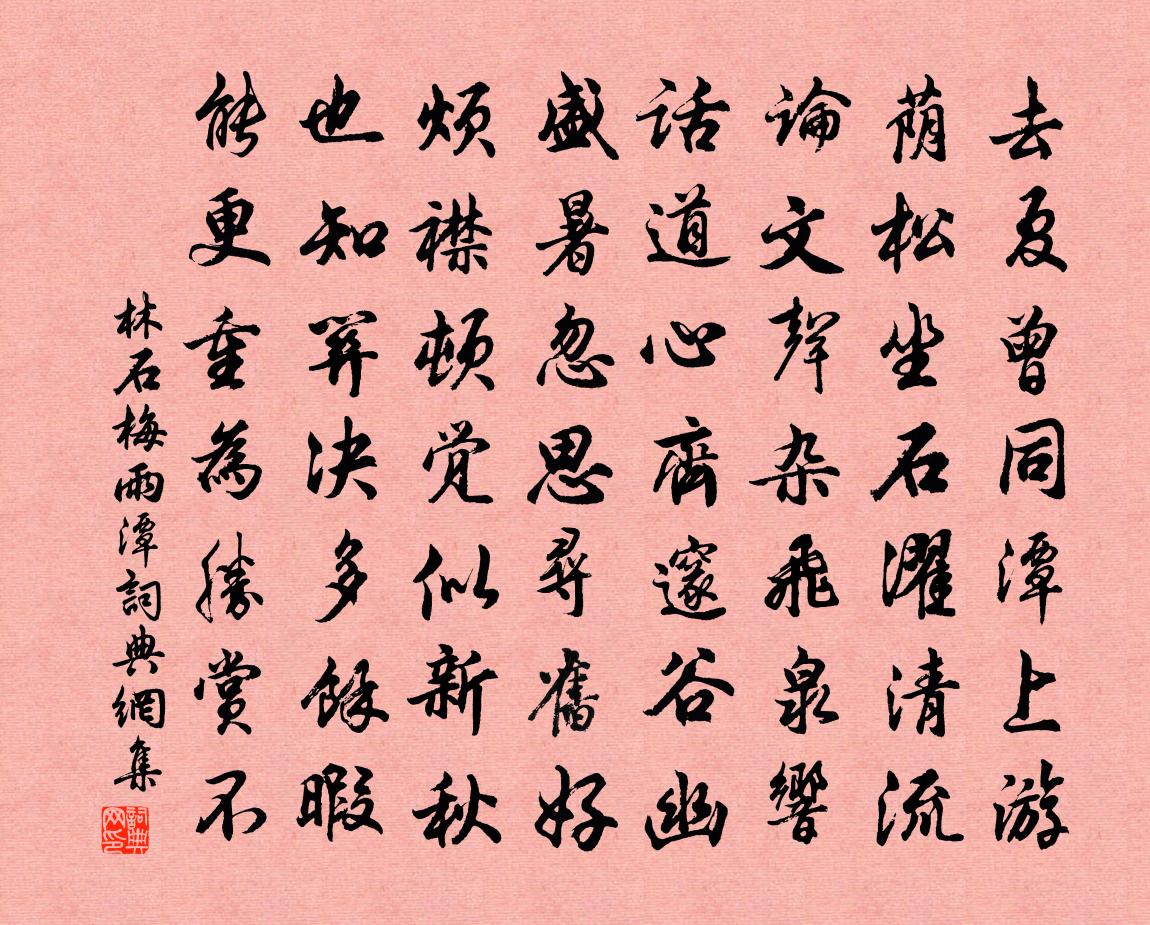 去夏曾同潭上游
荫松坐石濯清流
論文声杂飛泉響
话道心齊邃谷幽
盛暑忽思尋舊好
烦襟顿觉似新秋
也知算决多餘暇
能更重為勝赏不
林石梅雨潭詞典網集
詞典网印